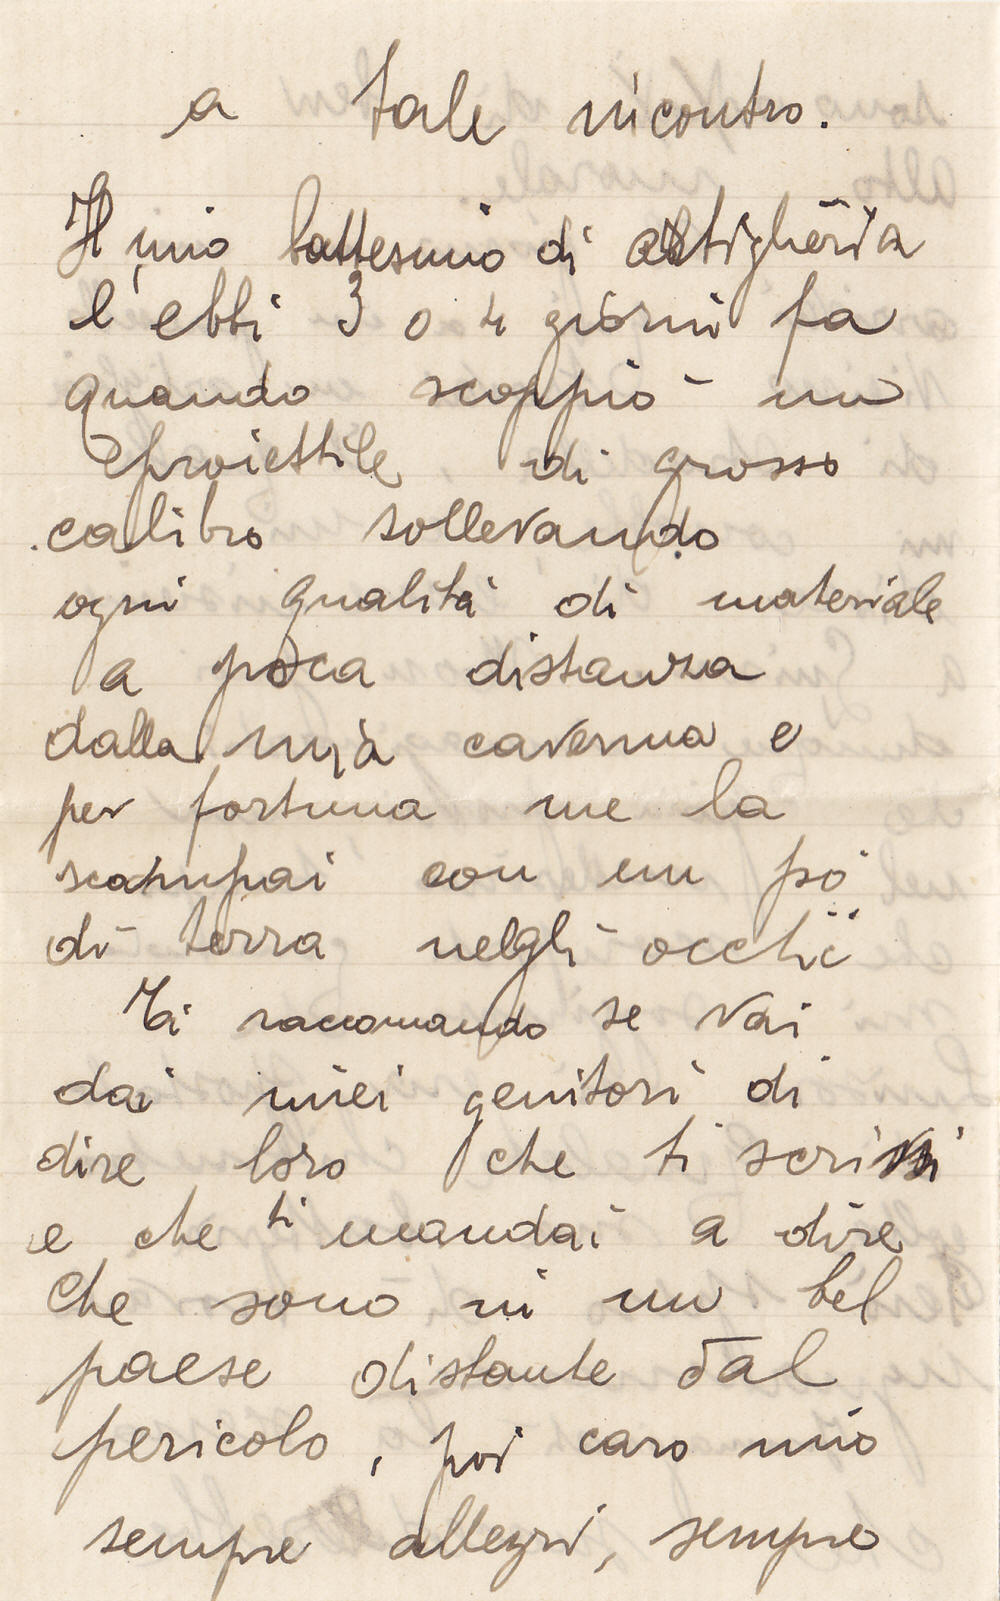 a tale incontro.
Il mio battesimo di artiglieria
l'ebbi 3 o 4 giorni fa
quando scoppiò un
proiettile di grosso
calibro sollevando
ogni qualità di materiale
a poca distanza
dalla mia caverna e
per fortuna me la
scampai con un pò
di terra nelgli occhii
Ti raccomando se vai
dai miei genitori di
dire loro che ti scrissi
e che ti mandai a dire
che sono in un bel
paese distante dal
pericolo, poi caro mio
sempre allegri, sempre